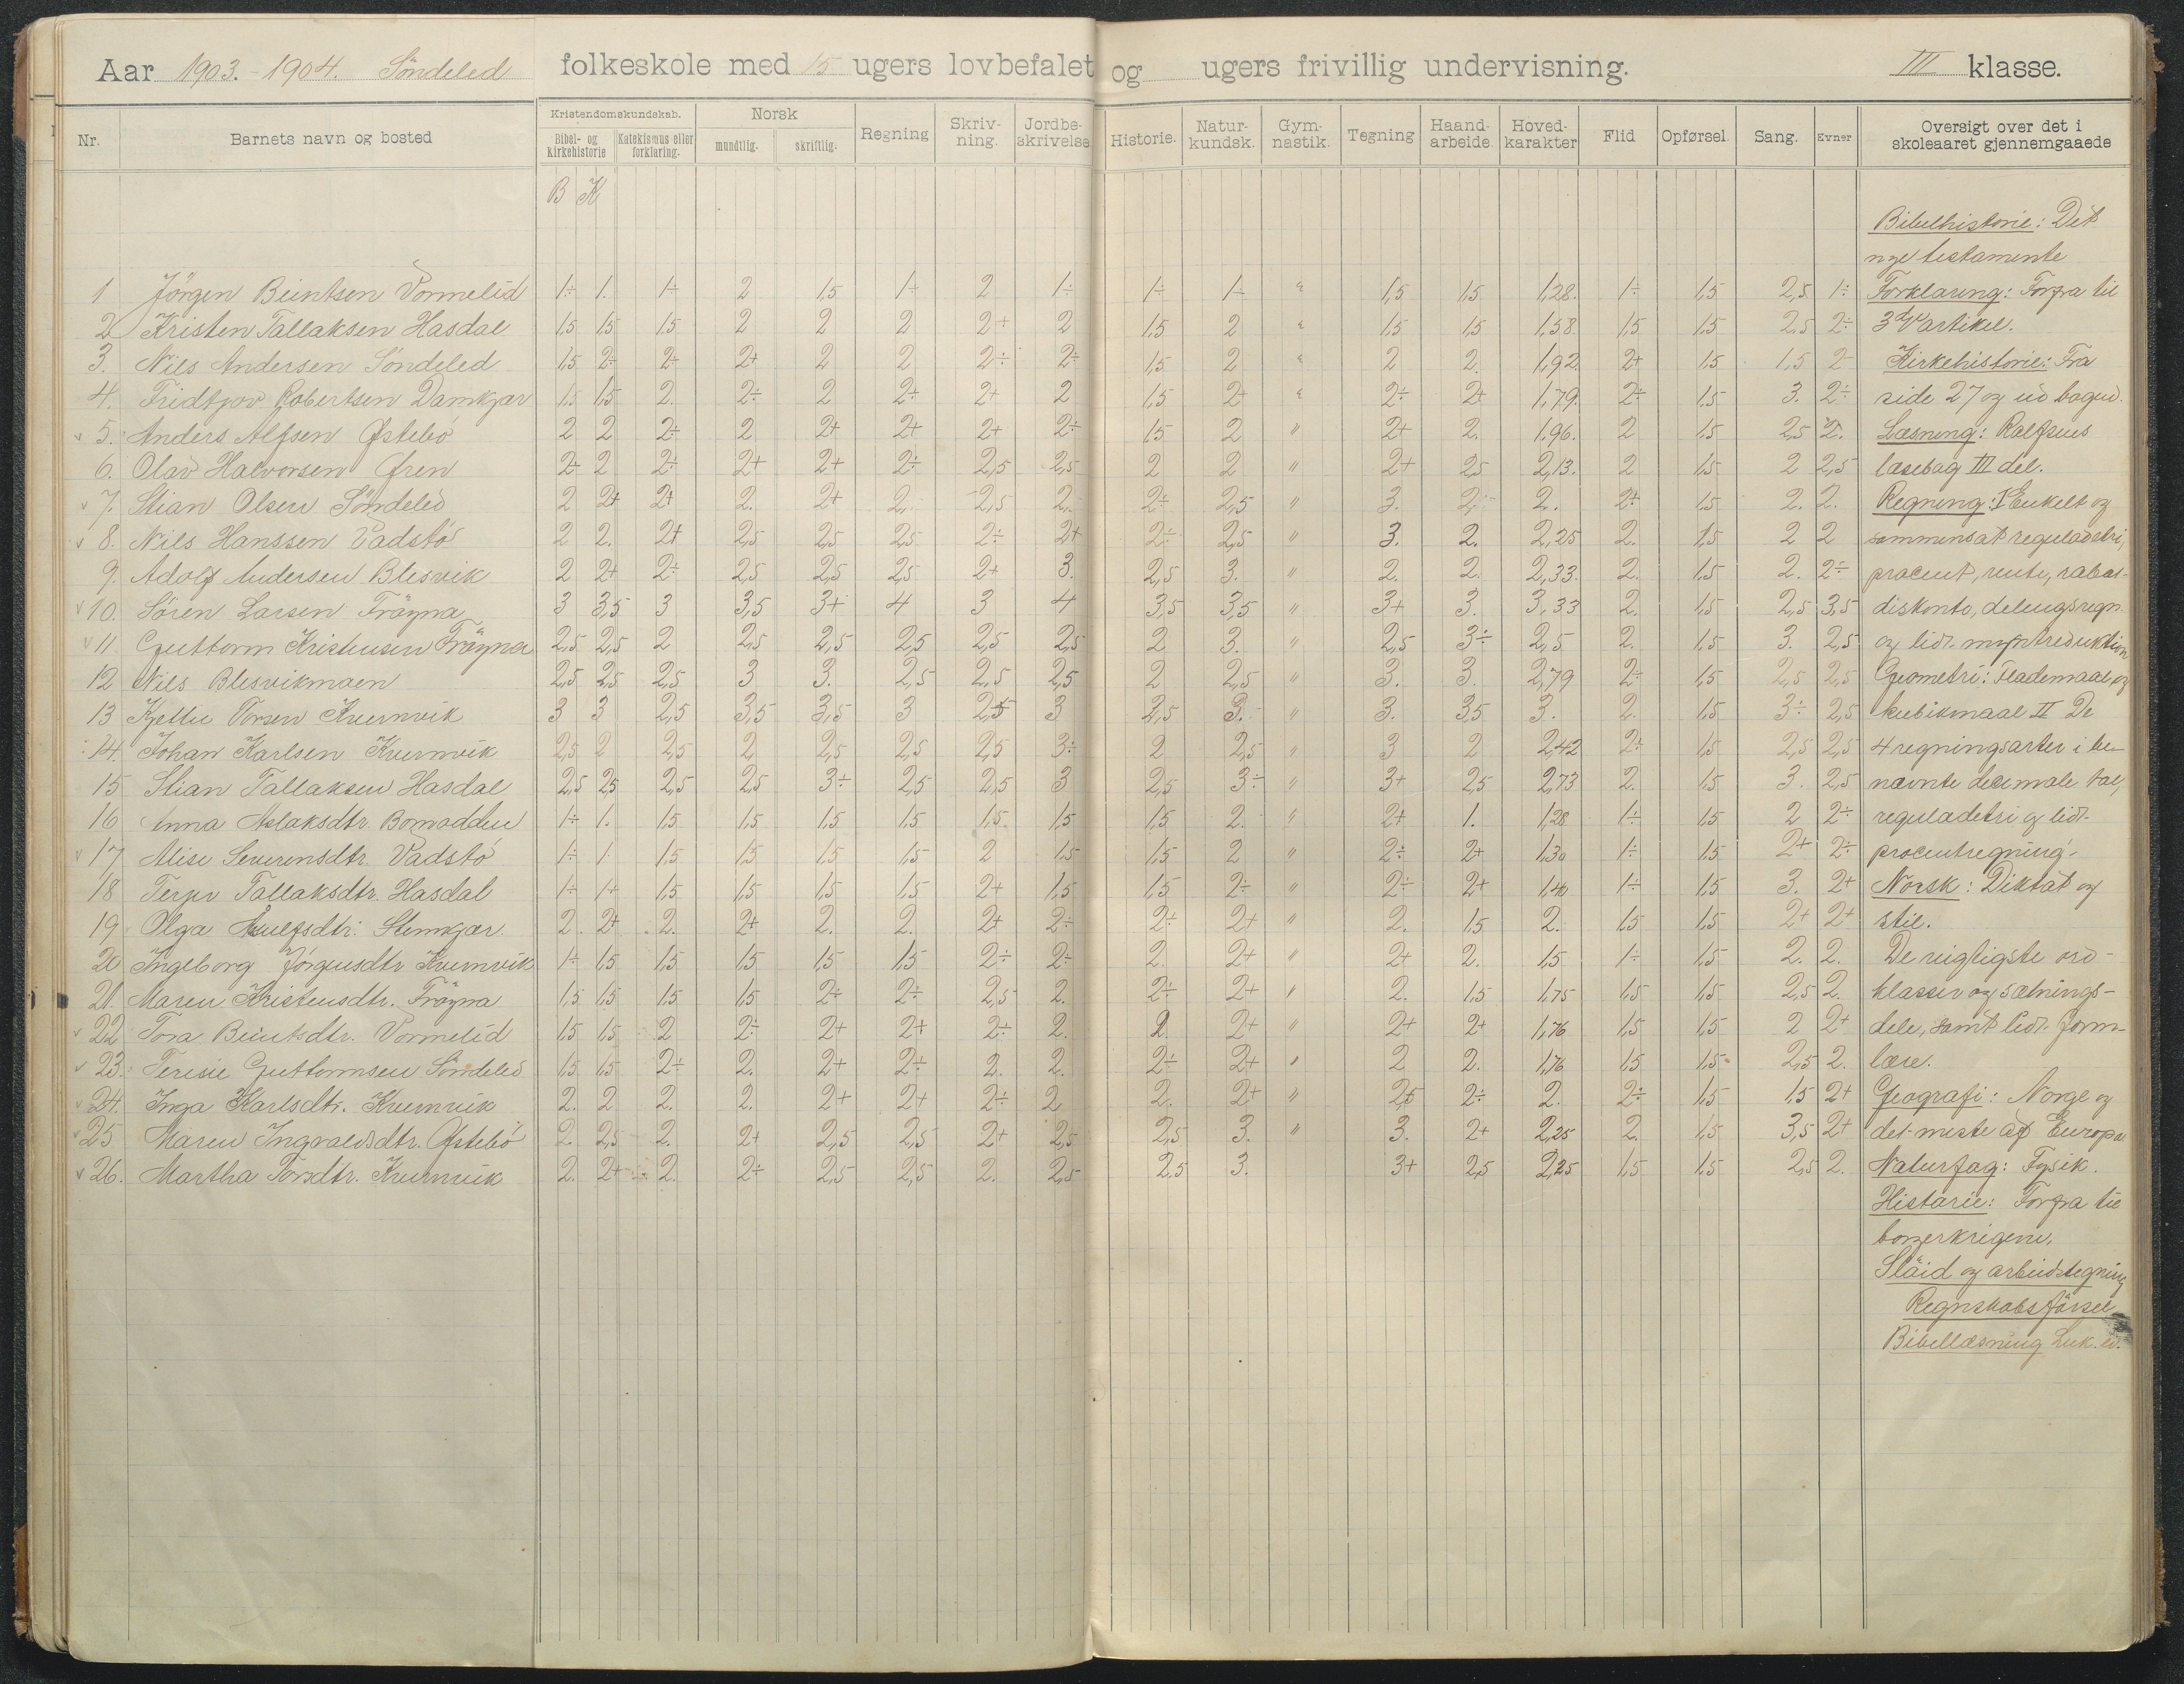 Aar 1903.-1904. Söndeled folkeskole med 15 ugers lovbefalet og ugers frivillig undervisning. III klasse.
Nr. Barnets navn og bosted Kristendomskundskab. Bibel- og kirkehistorie Katekismus eller forklaring. Norsk mundtlig. skriftlig. Regning Skriv-ning. Jordbe-skrivelse Historie. Natur-kundsk. Gym-nastik. Tegning Haand-arbeide. Hoved-karakter Flid Opførsel. Sang. Evner Oversigt over det i skoleaaret gjennemgaaede
B K
1 Jörgen Beintsen Vormelid 1÷ 1. 1÷ 2 1,5 1÷ 2 1÷ 1÷ 1÷ " 1,5 1,5 1,28. 1÷ 1,5 2,5 1÷
2 Kristen Tallaksen Hasdal 1,5 1,5 1,5 2 2 2 2+ 2 1,5 2 " 1,5 1,5 1,58 1,5 1,5 2,5 2÷
3. Nils Andersen Söndeled 1,5 2÷ 2÷ 2+ 2 2 2÷ 2÷ 1,5 2 " 2 2. 1,92. 2+ 1,5 1,5 2
4. Fridtjov Robertsen Damkjær 1,5 1,5 2. 2÷ 2 2+ 2+ 2 1,5 2+ " 2÷ 2+ 1,79. 2÷ 1,5 3. 2÷
5. Anders Alfsen Østebö 2 2 2÷ 2 2+ 2+ 2+ 2÷ 1,5 2 " 2+ 2. 1,96. 2 1,5 2,5 2.
6. Olav Halvorsen Øren 2+ 2 2÷ 2+ 2+ 2÷ 2,5 2,5 2 2 " 2+ 2,5 2,13. 2 1,5 2 2,5
7. Stian Olsen Söndeled 2 2+ 2+ 2. 2+ 2. 2,5 2. 2÷ 2,5 " 3. 2. 2. 2+ 1,5 2. 2.
8. Nils Hanssen Vadstö 2 2. 2+ 2,5 2,5 2,5 2÷ 2+ 2÷ 2,5 " 3. 2. 2,25 2. 1,5 2 2
9. Adolf Andersen Blesvik 2 2+ 2÷ 2,5 2,5 2,5 2+ 3. 2,5 3. " 2. 2. 2,33. 2. 1,5 2. 2÷
10. Sören Larsen Fröyna 3 3,5 3 3,5 3+ 4 3 4 3,5 3,5 " 3+ 3. 3,33 2. 1,5 2,5 3,5
11 Guttorm Kristensen Fröyna 2,5 2,5 2 2,5 2,5 2,5 2,5 2,5 2 3. " 2,5 3÷ 2,5 2. 1,5 3. 2,5
12 Nils Blesvikmoen 2,5 2,5 2,5 3 3. 2,5 2,5 2,5 2 2,5 " 3. 3. 2,79 2÷ 1,5 2,5 2,5
13 Kjetil Torsen Kvernvik 3 3 2,5 3,5 3,5 3 2,5 3 2,5 3. " 3. 3,5 3. 2. 1,5 3÷ 2,5
14. Johan Karlsen Kvernvik 2,5 2 2,5 2 2,5 2,5 2,5 3÷ 2 2,5 " 3 2 2,42 2÷ 1,5 2,5 2,5
15 Stian Tallaksen Hasdal 2,5 2,5 2,5 2,5 3÷ 2,5 2,5 3 2,5 3÷ " 3+ 2,5 2,73 2. 1,5 3. 2,5
16 Anna Aslaksdtr. 1÷ 1. 1,5 1,5 1,5 1,5 1,5 1,5 1,5 2. " 2+ 1. 1,28 1÷ 1,5 2 2÷
17 Alise Severensdtr. Vadstö 1÷ 1. 1,5 1,5 1,5 1,5 2 1,5 1,5 2 " 2÷ 2+ 1,30 1÷ 1,5 2+ 2÷
18 Tallaksdtr. Hasdal 1÷ 1+ 1,5 1,5 1,5 1,5 2+ 1,5 1,5 2÷ " 2÷ 2+ 1,40 1÷ 1,5 3. 2+
19 Olga 2. 2+ 2. 2+ 2. 2. 2+ 2÷ 2÷ 2+ " 2. 1,5 2. 1,5 1,5 2+ 2+
20 Ingeborg Jörgensdtr Kvernvik 1÷ 1,5 1,5 1,5 1,5 1,5 2÷ 2÷ 2. 2+ " 2+ 2. 1,5 1÷ 1,5 2. 2.
21. Maren Kristensdtr. Fröyna 1,5 1,5 1,5 1,5 2÷ 2÷ 2,5 2. 2÷ 2+ " 2. 1,5 1,75 1,5 1,5 2,5 2.
22 Tora Beintsdtr. Vormelid 1,5 1,5 2 2÷ 2+ 2+ 2÷ 2. 2. 2+ " 2+ 2+ 1,76 1,5 1,5 2 2+
23. Terisie Guttormsen Söndeled 1,5 1,5 2÷ 2. 2+ 2÷ 2. 2. 2÷ 2+ " 2 2. 1,76 1,5 1,5 2,5 2.
24. Inga Karlsdtr. Kvernvik 2. 2 2. 2. 2+ 2+ 2÷ 2 2. 2+ " 2,5 2÷ 2. 2÷ 1,5 1,5 2+
25 Maren Ingvaldsdtr. Østebö 2. 2,5 2. 2+ 2,5 2,5 2+ 2,5 2,5 3. " 3. 2+ 2,25 2. 1,5 3,5 2+
26. Martha Torsdtr. Kvernvik 2. 2+ 2. 2÷ 2,5 2,5 2. 2,5 2.5 3. 3+ 2,5 2,25 1,5 1,5 2,5 2.
Bibelhistorie: Det
nye testamente
Forklaring: Forfra til
3die artikel.
Kirkehistorie: Fra
side 27 og ud bogen.
Læsning: Rolfsens
læsebog III del.
Regning: I Enkelt og
sammensat reguladetri,
procent, rente, rabat-
diskonto, delingsregn.
og lidt myntreduktion
Geometri: Flademaal og
kubikmaal II De
4 regningsarter i be-
nævnte decimale tal,
reguladetri og lidt
procentregning.
Norsk: Diktat og
stil.
De vigtigste ord-
klasser og sætnings-
dele, samt lidt form-
lære.
Geografi: Norge og
det meste af Europa
Naturfag: Fysik.
Historie: Forfra til
borgerkrigene.
Slöid og arbeidstegning
Regnskabsförsel
Bibellæsning Luk. ev.